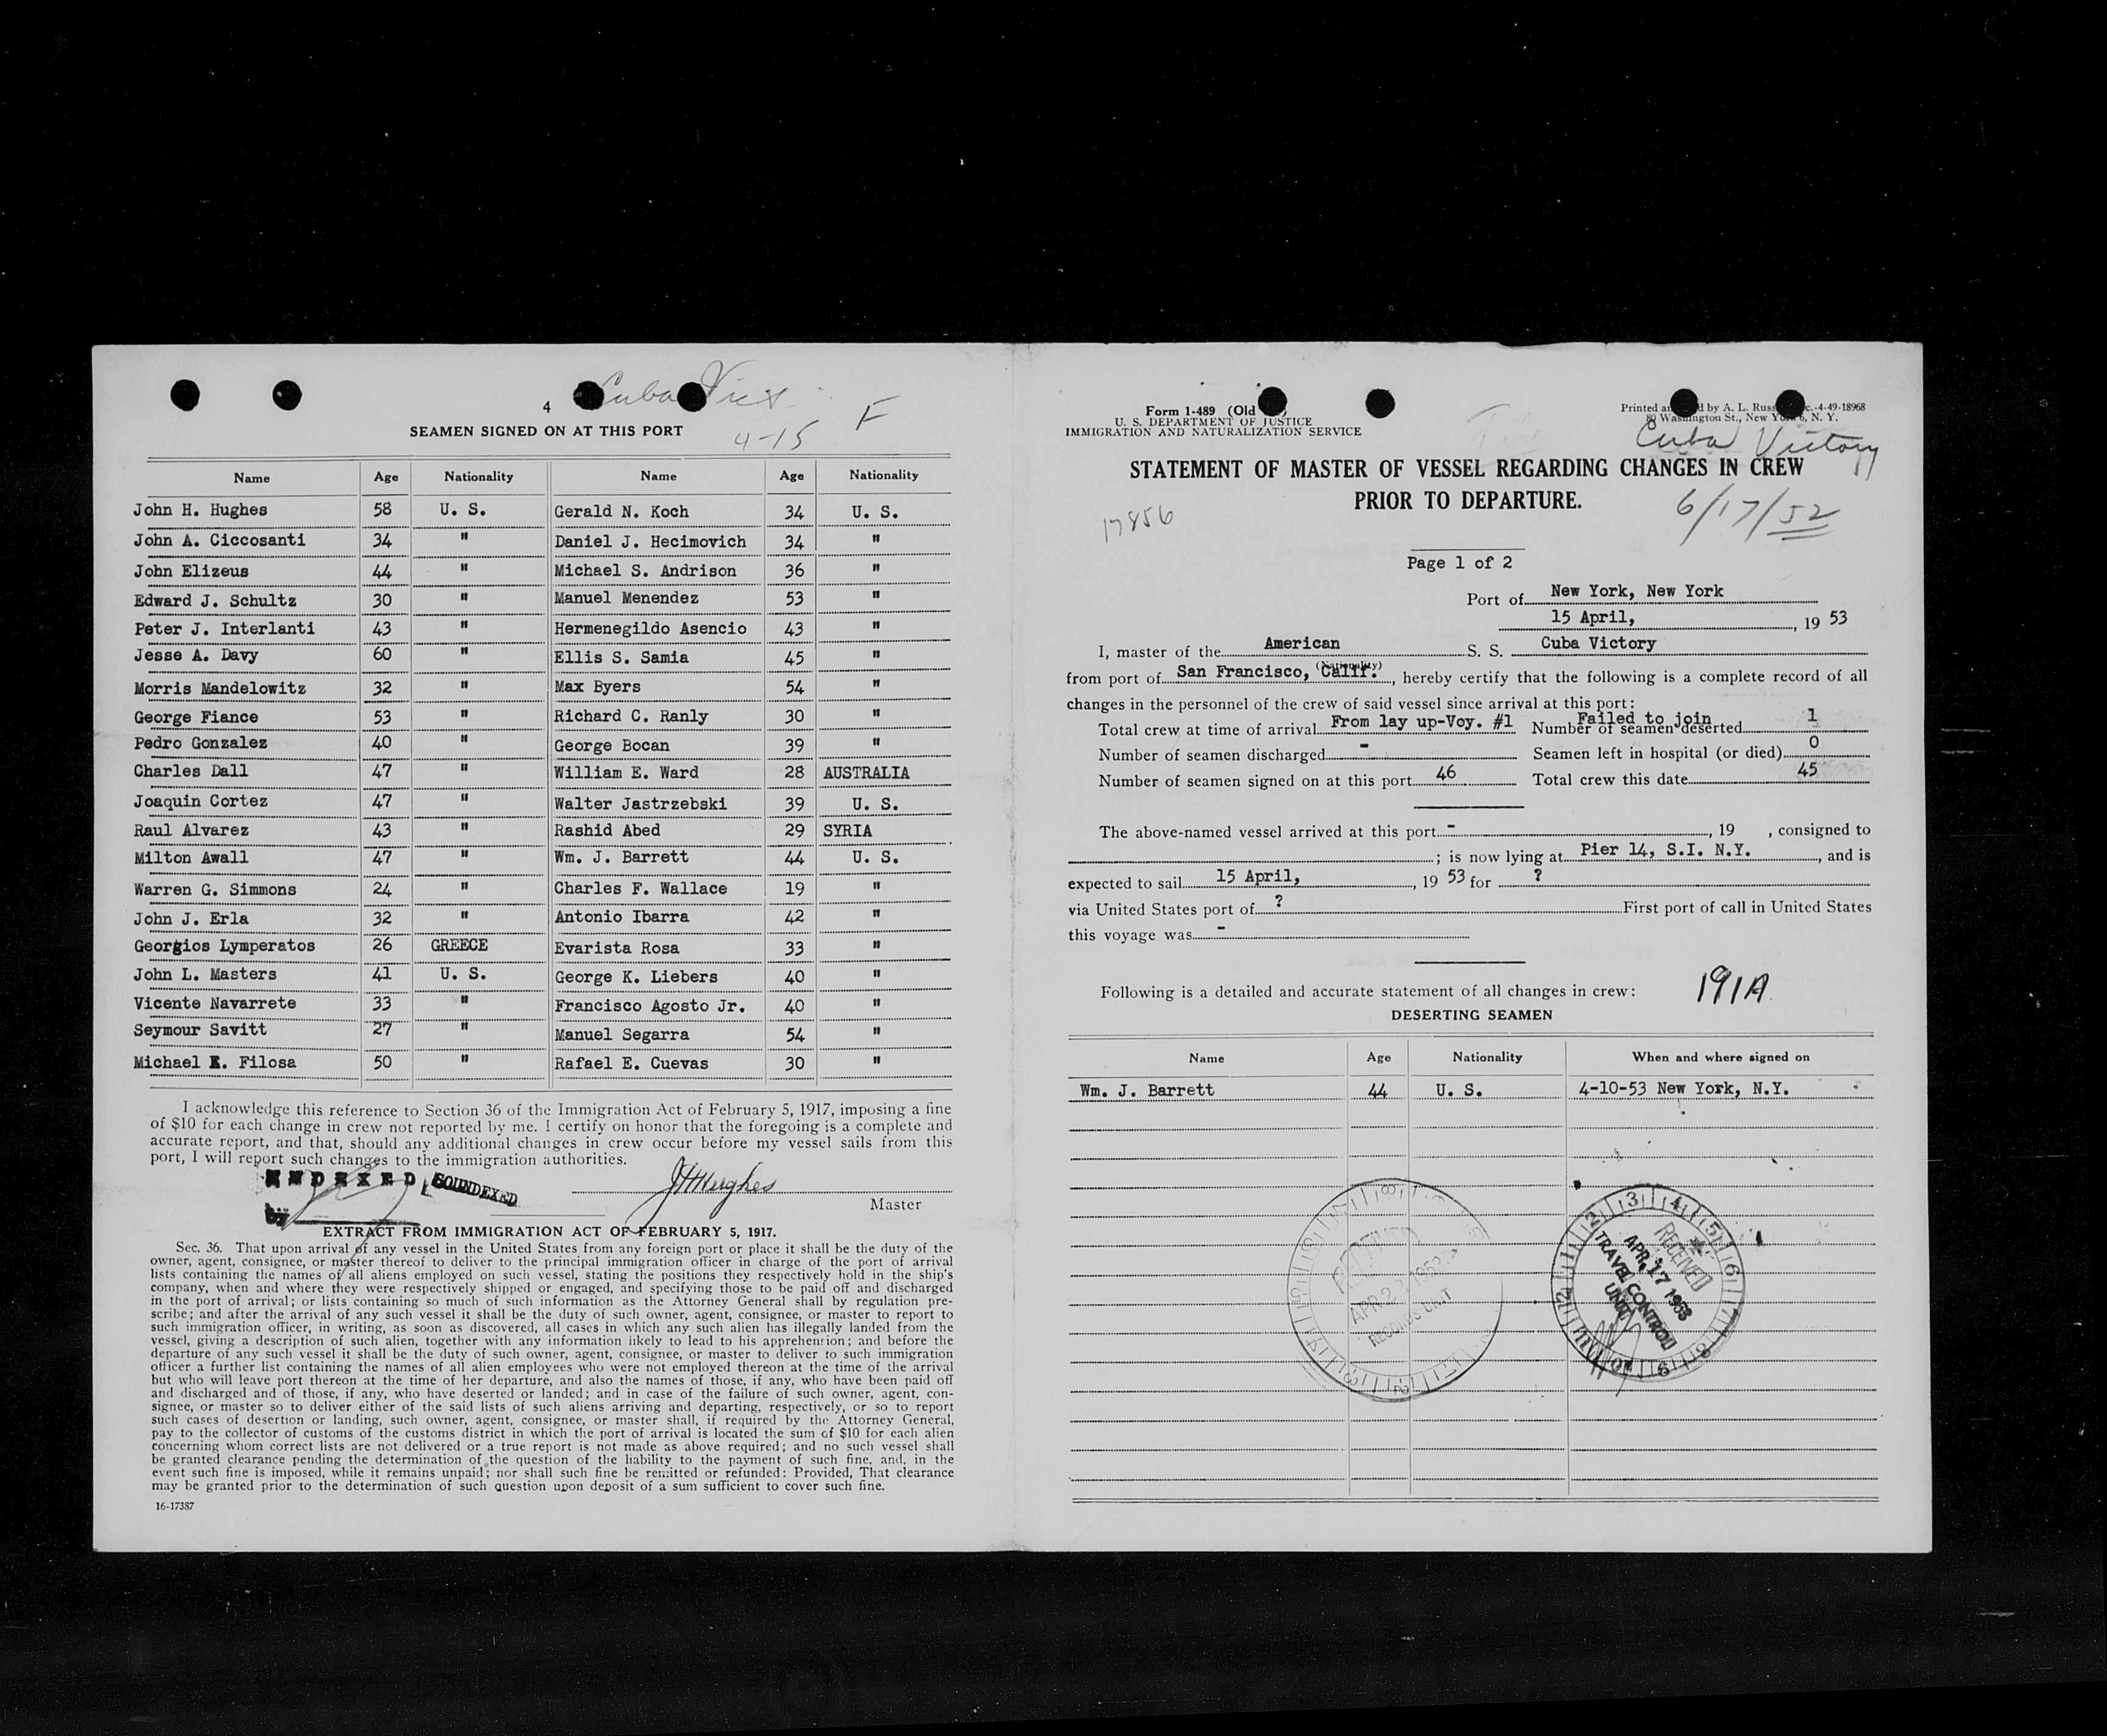 4
Cuba Vict.
F
SEAMEN SIGNED ON AT THIS PORT
4-15
Name Age Nationality Name Age Nationality
John H. Hughes 58 U. S. Gerald N. Koch 34 U. S.
John A. Ciccosanti 34 " Daniel J. Hecimovich 34 "
John Elizeus 44 " Michael S. Andrison 36 "
Edward J. Schultz 30 " Manuel Menendez 53 "
Peter J. Interlanti 43 " Hermenegildo Asencio 43 "
Jesse A. Davy 60 " Ellis S. Samia 45 "
Morris Mandelowitz 32 " Max Byers 54 "
George Fiance 53 " Richard C. Ranly 30 "
Pedro Gonzalez 40 " George Bocan 39 "
Charles Dall 47 " William E. Ward 28 AUSTRALIA
Joaquin Cortez 47 " Walter Jastrzebski 39 U. S.
Raul Alvarez 43 " Rashid Abed 29 SYRIA
Milton Awall 47 " Wm. J. Barrett 44 U. S.
Warren G. Simmons 24 " Charles F. Wallace 19 "
John J. Erla 32 " Antonio Ibarra 42 "
Georgios Lymperatos 26 GREECE Evarista Rosa 33 "
John L. Masters 41 U. S. George K. Liebers 40 "
Vicente Navarrete 33 " Francisco Agosto Jr. 40 "
Seymour Savitt 27 " Manuel Segarra 54 "
Michael E. Filosa 50 " Rafael E. Cuevas 30 "
I acknowledge this reference to Section 36 of the Immigration Act of February 5, 1917, imposing a fine
of $10 for each change in crew not reported by me. I certify on honor that the foregoing is a complete and
accurate report, and that, should any additional changes in crew occur before my vessel sails from this
port, I will report such changes to the immigration authorities.
INDEXED SOUNDEXED
by
JHHughes
Master
EXTRACT FROM IMMIGRATION ACT OF FEBRUARY 5, 1917.
Sec. 36. That upon arrival of any vessel in the United States from any foreign port or place it shall be the duty of the
owner, agent, consignee, or master thereof to deliver to the principal immigration officer in charge of the port of arrival
lists containing the names of all aliens employed on such vessel, stating the positions they respectively hold in the ship's
company, when and where they were respectively shipped or engaged, and specifying those to be paid off and discharged
in the port of arrival; or lists containing so much of such information as the Attorney General shall by regulation pre-
scribe; and after the arrival of any such vessel it shall be the duty of such owner, agent, consignee, or master to report to
such immigration officer, in writing, as soon as discovered, all cases in which any such alien has illegally landed from the
vessel, giving a description of such alien, together with any information likely to lead to his apprehension; and before the
departure of any such vessel it shall be the duty of such owner, agent, consignee, or master to deliver to such immigration
officer a further list containing the names of all alien employees who were not employed thereon at the time of the arrival
but who will leave port thereon at the time of her departure, and also the names of those, if any, who have been paid off
and discharged and of those, if any, who have deserted or landed; and in case of the failure of such owner, agent, con-
signee, or master so to deliver either of the said lists of such aliens arriving and departing, respectively, or so to report
such cases of desertion or landing, such owner, agent, consignee, or master shall, if required by the Attorney General,
pay to the collector of customs of the customs district in which the port of arrival is located the sum of $10 for each alien
concerning whom correct lists are not delivered or a true report is not made as above required; and no such vessel shall
be granted clearance pending the determination of the question of the liability to the payment of such fine, and, in the
event such fine is imposed, while it remains unpaid; nor shall such fine be remitted or refunded: Provided, That clearance
may be granted prior to the determination of such question upon deposit of a sum sufficient to cover such fine.
16-17387
Form 1-489 (Old
U. S. DEPARTMENT OF JUSTICE
IMMIGRATION AND NATURALIZATION SERVICE
Printed by A. L. Russ c.-4-49-18968
80 Washington St., New York 6, N. Y.
Cuba Victory
STATEMENT OF MASTER OF VESSEL REGARDING CHANGES IN CREW
PRIOR TO DEPARTURE.
17856
6/17/52
Page 1 of 2
Port of New York, New York
15 April, , 19 53
I, master of the American S. S. Cuba Victory
(Nationality)
from port of San Francisco, Calif. , hereby certify that the following is a complete record of all
changes in the personnel of the crew of said vessel since arrival at this port:
Total crew at time of arrival From lay up-Voy. #1 Failed to join Number of seamen deserted 1
Number of seamen discharged - Seamen left in hospital (or died) 0
Number of seamen signed on at this port 46 Total crew this date 45
The above-named vessel arrived at this port - , 19 , consigned to
; is now lying at Pier 14, S.I. N.Y. , and is
expected to sail 15 April, , 19 53 for ?
via United States port of ? First port of call in United States
this voyage was -
Following is a detailed and accurate statement of all changes in crew: 191A
DESERTING SEAMEN
Name Age Nationality When and where signed on
Wm. J. Barrett 44 U. S. 4-10-53 New York, N.Y.
RECEIVED
APR 17 1953
TRAVEL CONTROL
UNIT
APR 2 1953
RECORDS UNIT